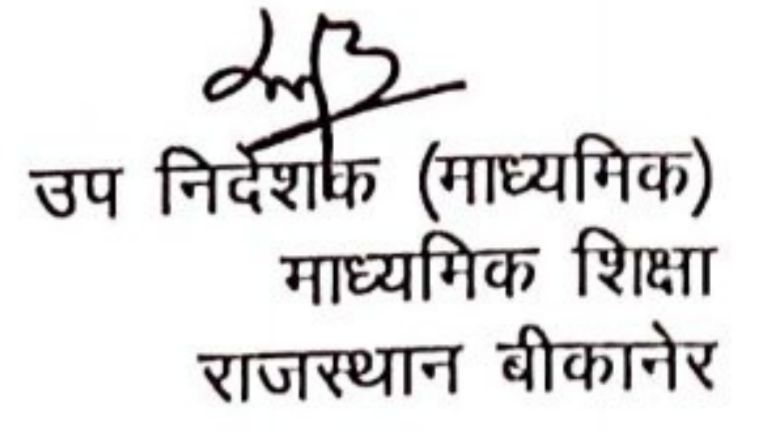 उप निर्देशक (माध्यमिक)
माध्यमिक शिक्षा
राजस्थान बीकानेर